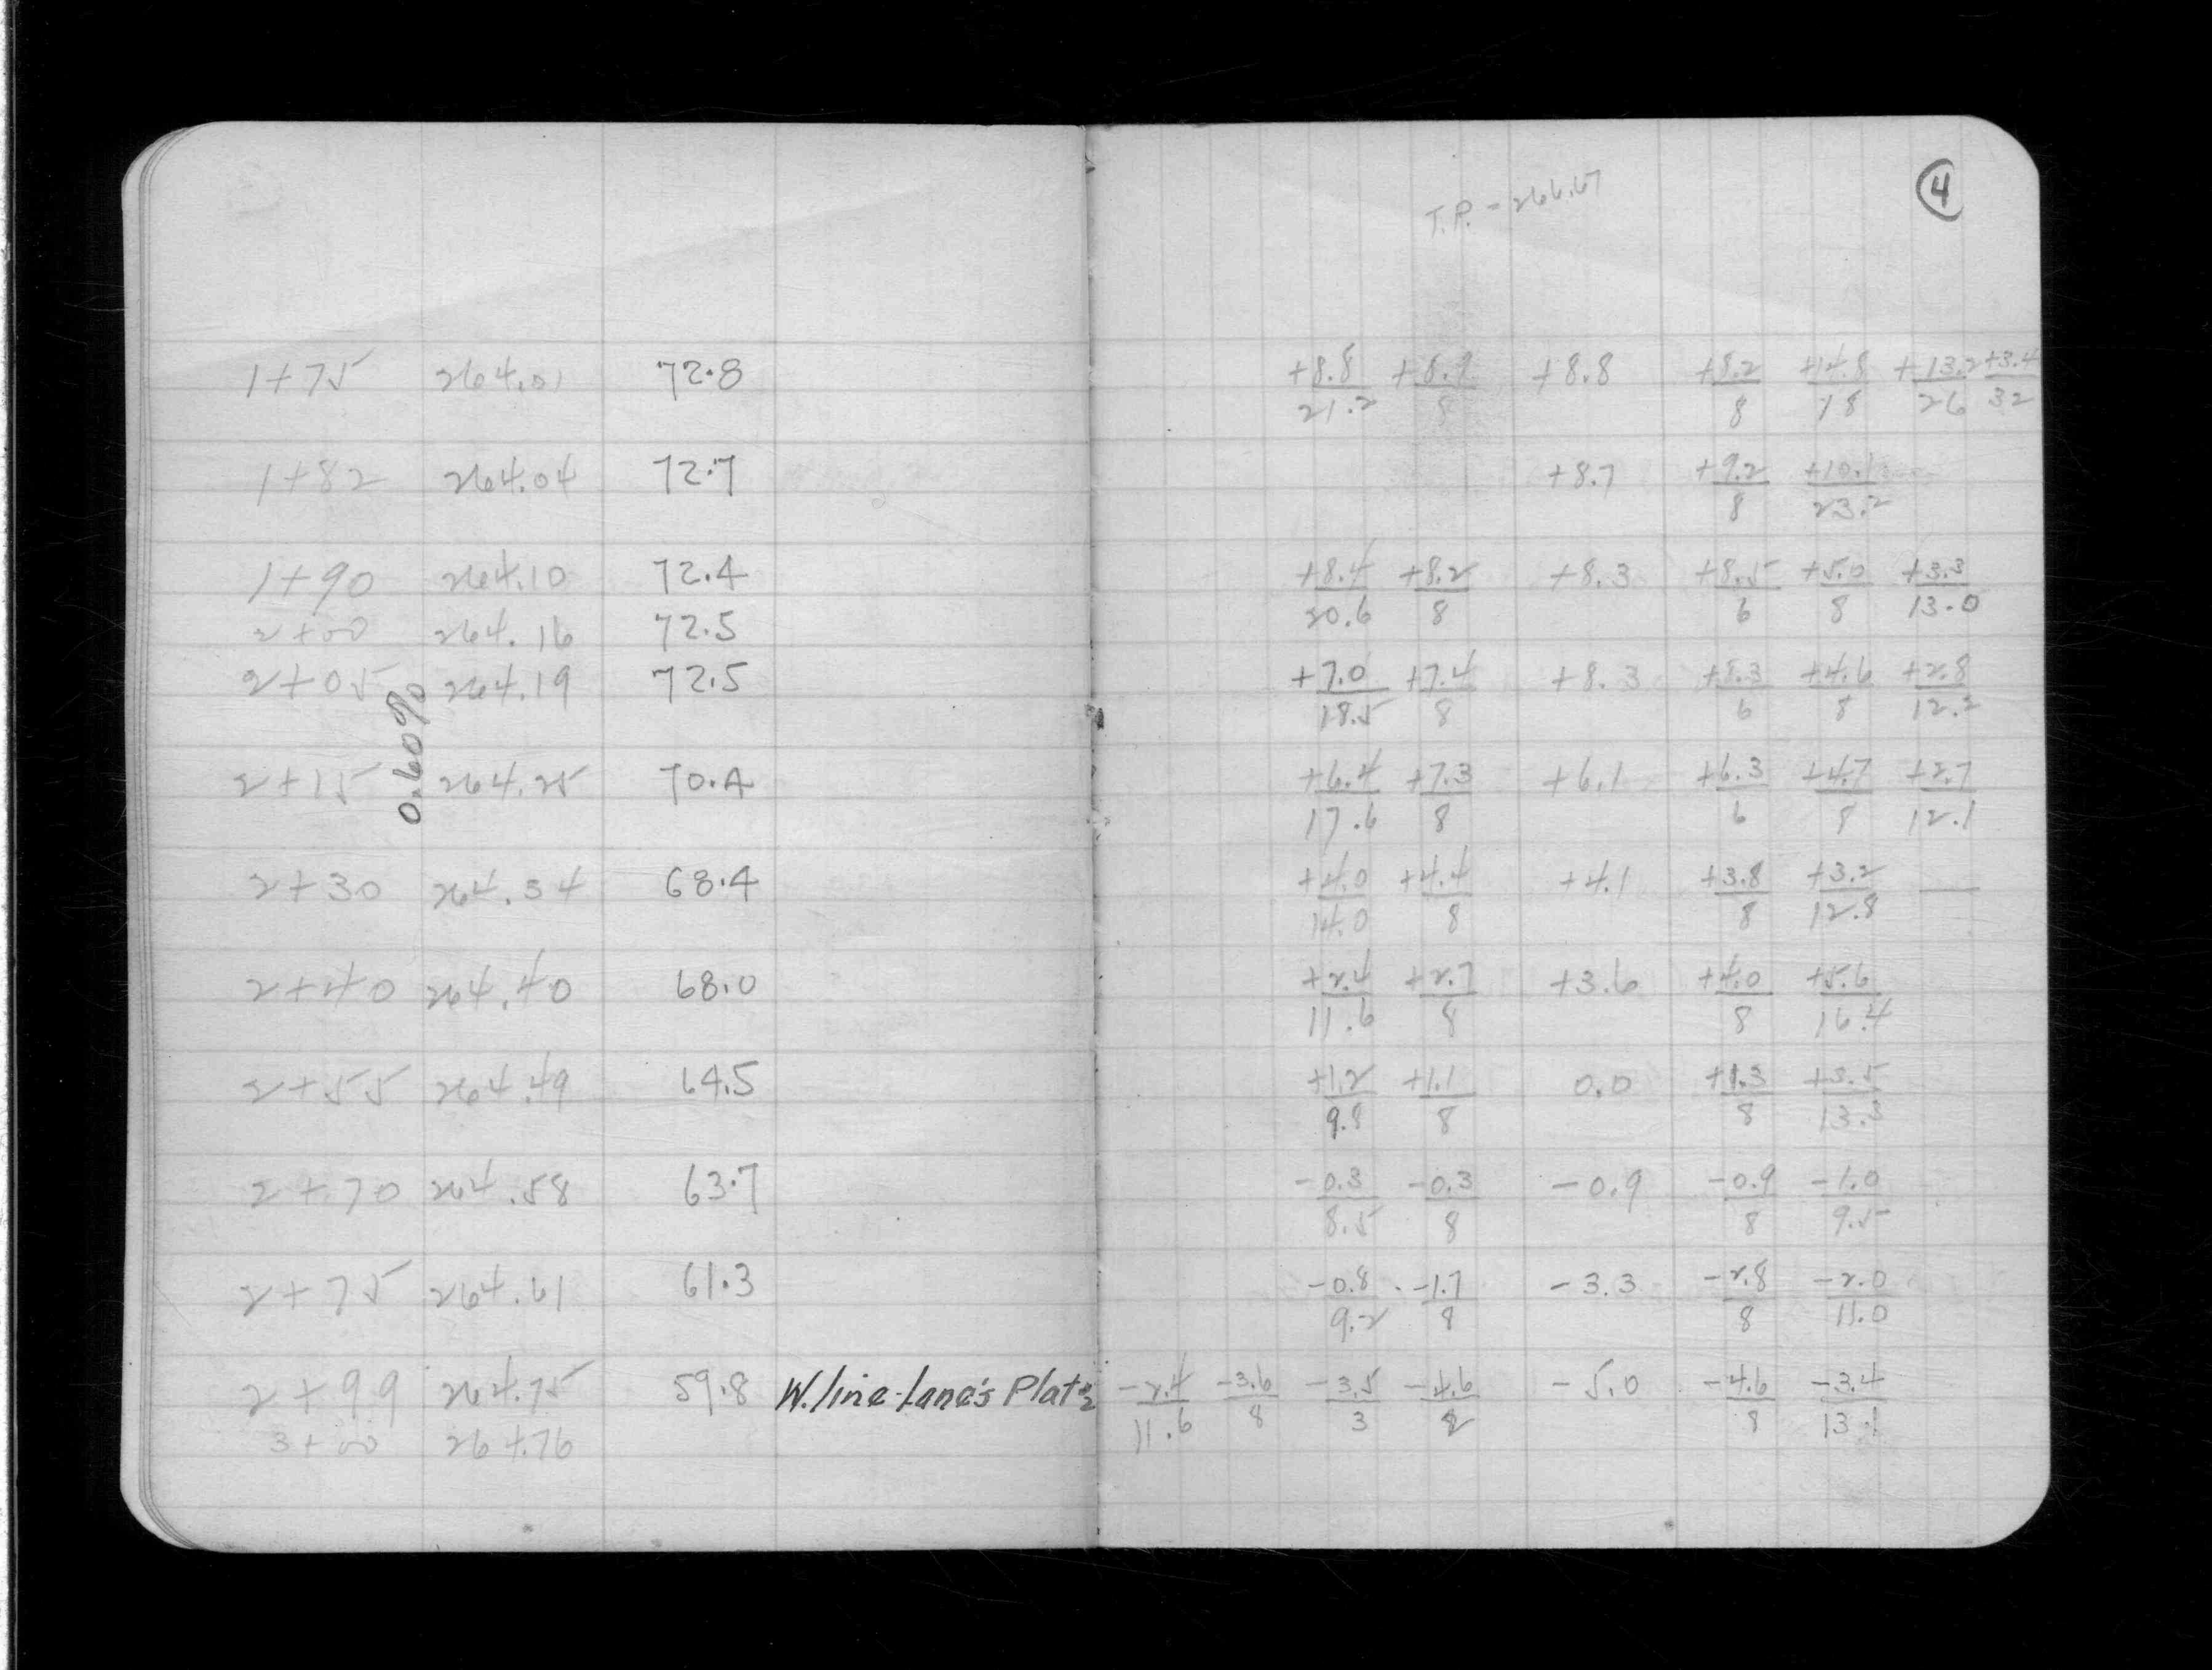 ④
T.P. = 266.67
1+75 264.01 72.8 +8.8/21.2 +8.9/8 +8.8 +8.2/8 +14.8/18 +13.2/26 +3.4/32
1+82 264.04 72.7 +8.7 +9.2/8 +10.1/23.2
1+90 264.10 72.4 +8.4/20.6 +8.2/8 +8.3 +8.5/6 +5.0/8 +3.3/13.0
2+00 264.16 72.5
2+05 264.19 72.5 +7.0/18.5 +7.4/8 +8.3 +8.3/6 +4.6/8 +2.8/12.2
0.60%
2+15 264.25 70.4 +6.4/17.6 +7.3/8 +6.1 +6.3/6 +4.7/8 +2.7/12.1
2+30 264.34 68.4 +4.0/14.0 +4.4/8 +4.1 +3.8/8 +3.2/12.8 —
2+40 264.40 68.0 +2.4/11.6 +2.7/8 +3.6 +4.0/8 +5.6/16.4
2+55 264.49 64.5 +1.2/9.8 +1.1/8 0.0 +1.3/8 +3.5/13.3
2+70 264.58 63.7 -0.3/8.5 -0.3/8 -0.9 -0.9/8 -1.0/9.5
2+75 264.61 61.3 -0.8/9.2 -1.7/8 -3.3 -2.8/8 -2.0/11.0
2+99 264.75 59.8 W. line-Lane's Plat 2 -2.4/11.6 -3.6/8 -3.5/3 -4.6/8 -5.0 -4.6/8 -3.4/13.1
3+00 264.76